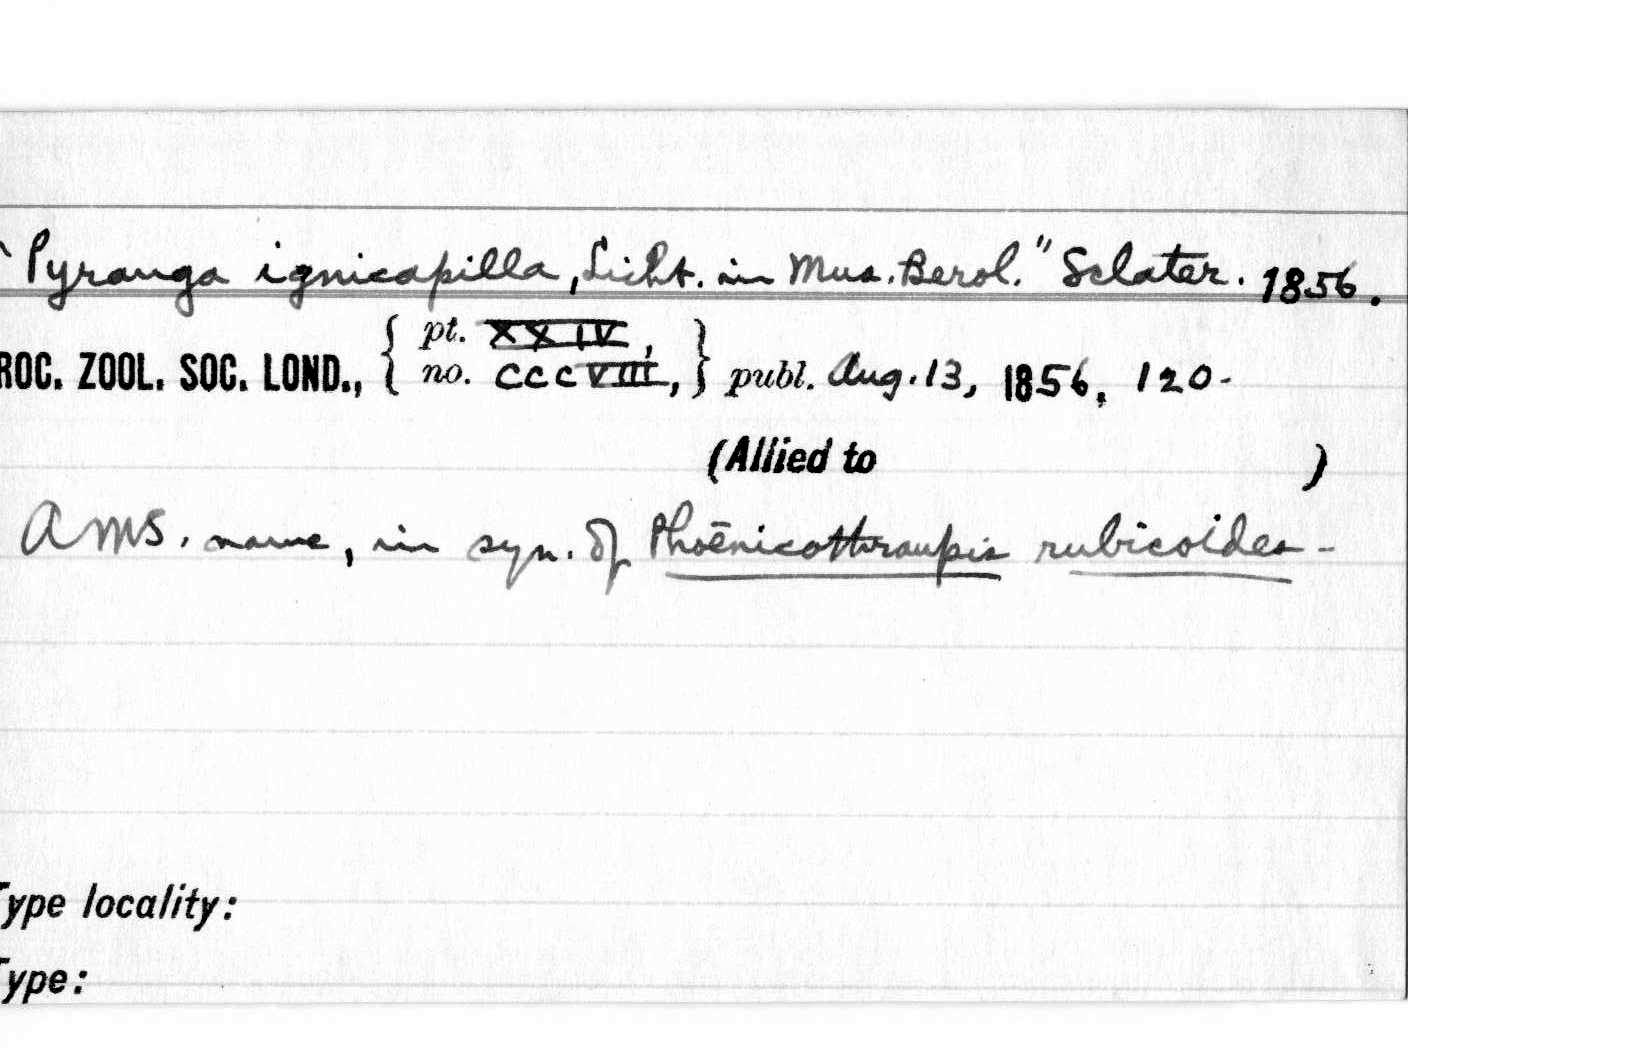 " Pyranga ignicapilla, Licht. in Mus. Berol." Sclater. 1856.
ROC. ZOOL. SOC. LOND., { pt. XXIV, no. CCCVIII, } publ. Aug. 13, 1856, 120-
(Allied to )
A MS. name, in syn. of Phoenicothraupis rubicoides-
Type locality:
Type: